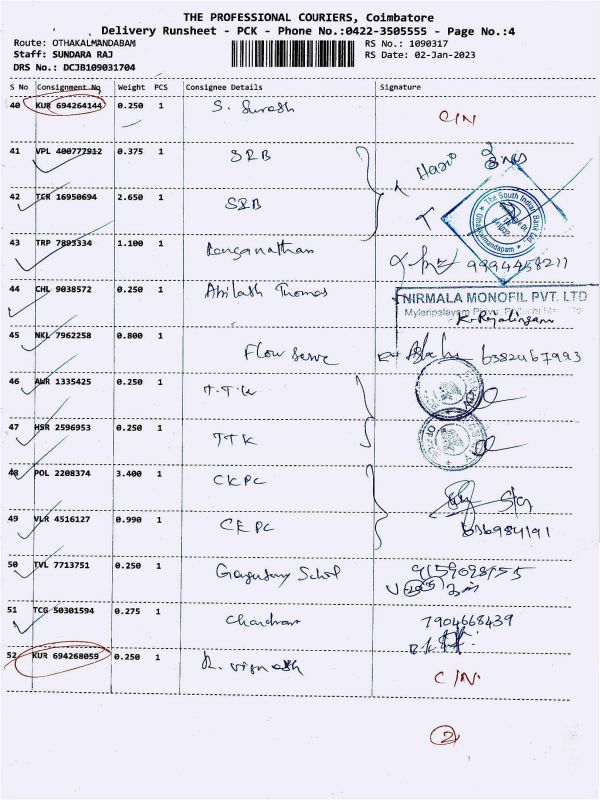 THE PROFESSIONAL COURIERS, Coimbatore
Delivery Runsheet - PCK - Phone No.:0422-3505555 - Page No.:4
Route: OTHAKALMANDABAM RS No.: 1090317
Staff: SUNDARA RAJ RS Date: 02-Jan-2023
DRS No.: DCJB109031704
S No Consignment No Weight PCS Consignee Details Signature
40 KUR 694264144 0.250 1 S. Suresh C/N
41 VPL 400777912 0.375 1 SRB Hari
42 TER 16950694 2.650 1 SRB
The South Indian Bank Ltd.
Othakalmandapam
43 TRP 7893334 1.100 1 Ranganathan 9994458211
44 CHL 9038572 0.250 1 Abilash Thomas
NIRMALA MONOFIL PVT. LTD
Myleripalayam
K. Rajalingam
45 NKL 7962258 0.800 1 Flow Serve 6382467993
46 AWR 1335425 0.250 1 T.T.K
47 HSR 2596953 0.250 1 TTK
48 POL 2208374 3.400 1 CKPC
49 VLR 4516127 0.990 1 CKPC
50 TVL 7713751 0.250 1 9159098755
51 TCG 50301594 0.275 1 Chandran 7904668439
52 KUR 694268059 0.250 1 R. Vignesh C/N
2